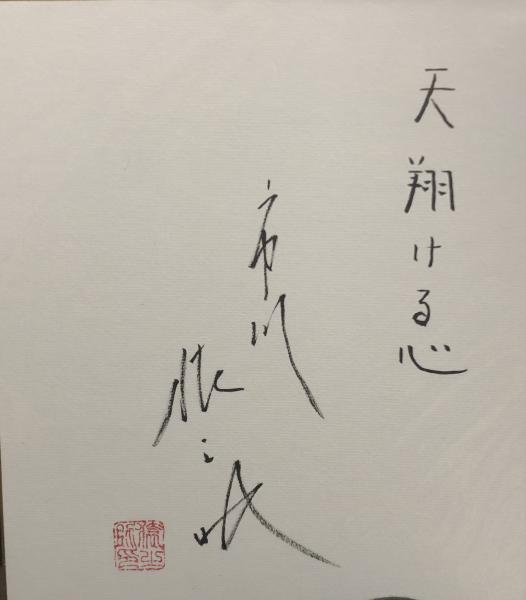 天翔ける心
市川猿之助